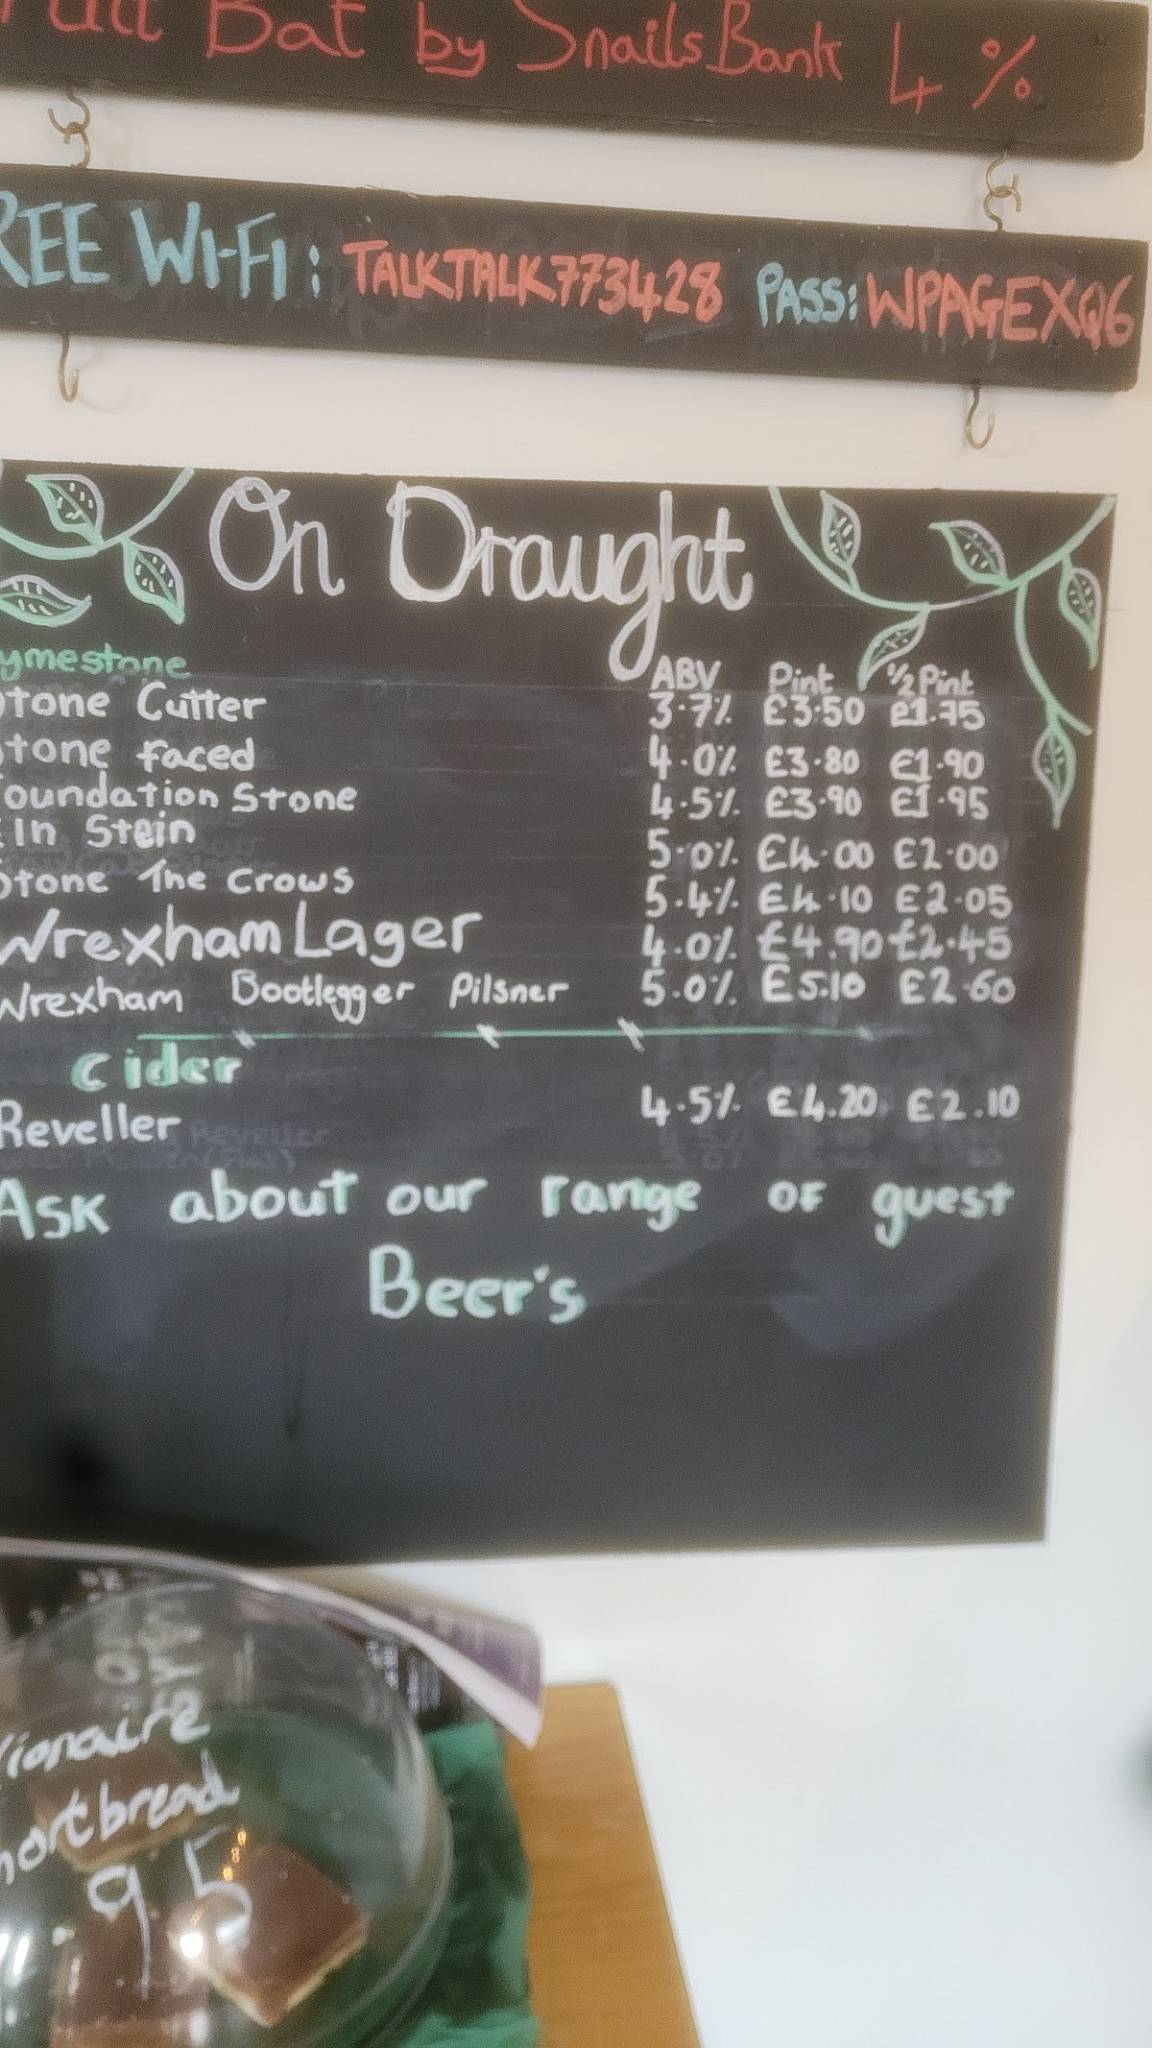 Bat by SnailsBank 4%
REE WI-FI: TALKTALK773428 PASS: WPAGEXQ6
On Draught
ymestone ABV Pint ½ Pint
tone Cutter 3.7% £3.50 £1.75
tone Faced 4.0% £3.80 £1.90
oundation Stone 4.5% £3.90 £1.95
In Stein 5.0% £4.00 £2.00
Stone The Crows 5.4% £4.10 £2.05
Wrexham Lager 4.0% £4.90 £2.45
Wrexham Bootlegger Pilsner 5.0% £5.10 £2.60
Cider
Reveller 4.5% £4.20 £2.10
Ask about our range of guest
Beer's
ionaire
hortbread
95